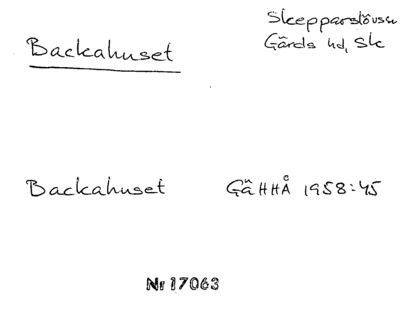 Backahuset
Skepparslövssn
Gärds hd, Sk
Backahuset GäHHÅ 1958:45
Nr 17063